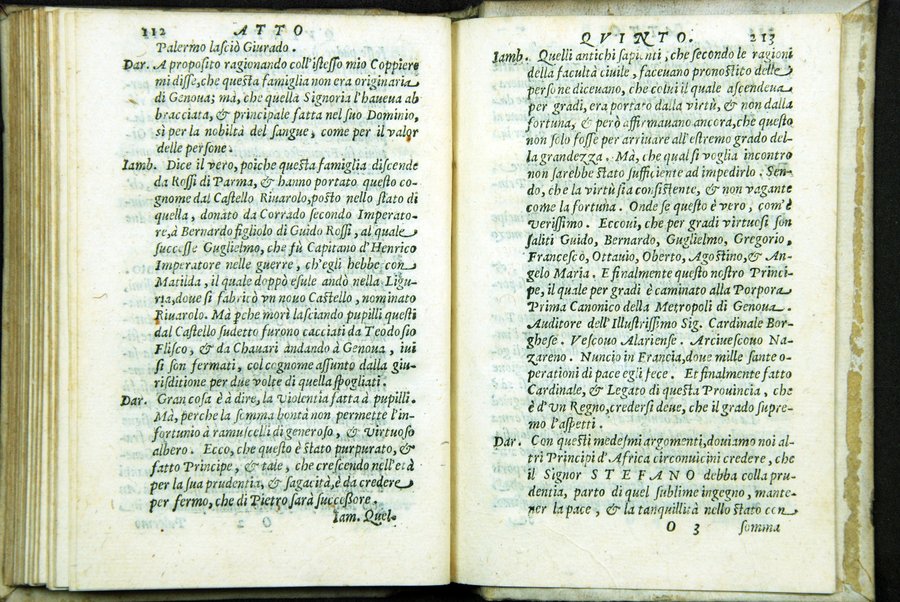 112 ATTO
Palermo lasciò Giurado.
Dar. A proposito ragionando coll'istesso mio Coppiere
mi disse, che questa famiglia non era originaria
di Genoua; mà, che quella Signoria l'haueua ab
bracciata, & principale fatta nel suo Dominio,
sì per la nobiltà del sangue, come per il valor
delle persone.
Iamb. Dice il vero, poiche questa famiglia discende
da Rossi di Parma, & hanno portato questo co-
gnome dal Castello Riuarolo, posto nello stato di
quella, donato da Corrado secondo Imperato-
re, à Bernardo figliolo di Guido Rossi, al quale
successe Guglielmo, che fù Capitano d'Henrico
Imperatore nelle guerre, ch'egli hebbe con
Matilda, il quale doppò esule andò nella Ligu-
ria, doue si fabricò vn nouo Castello, nominato
Riuarolo. Mà pche morì lasciando pupilli questi
dal Castello sudetto furono cacciati da Teodosio
Flisco, & da Chauari andando à Genoua, iui
si son fermati, col cognome assunto dalla giu-
risditione per due volte di quella spogliati.
Dar. Gran cosa è à dire, la violentia fatta à pupilli.
Mà, perche la somma bontà non permette l'in-
fortunio à ramuscelli di generoso, & virtuoso
albero. Ecco, che questo è stato purpurato, &
fatto Principe, & tale, che crescendo nell'età
per la sua prudentia, & sagacità, è da credere
per fermo, che di Pietro sarà successore.
O 2 Iam. Quel-
QVINTO. 213
Iamb. Quelli antichi sapienti, che secondo le ragioni
della facultà ciuile, faceuano pronostico delle
persone diceuano, che colui il quale ascendeua
per gradi, era portato dalla virtù, & non dalla
fortuna, & però affirmauano ancora, che questo
non solo fosse per arriuare all'estremo grado del-
la grandezza. Mà, che qual si voglia incontro
non sarebbe stato sufficiente ad impedirlo. Sen-
do, che la virtù sia consistente, & non vagante
come la fortuna. Onde se questo è vero, com'è
verissimo. Eccoui, che per gradi virtuosi son
saliti Guido, Bernardo, Guglielmo, Gregorio,
Francesco, Ottauio, Oberto, Agostino, & An-
gelo Maria. E finalmente questo nostro Princi-
pe, il quale per gradi è caminato alla Porpora
Prima Canonico della Metropoli di Genoua.
Auditore dell'Illustrissimo Sig. Cardinale Bor-
ghese. Vescouo Alariense. Arciuescouo Na-
zareno. Nuncio in Francia, doue mille sante o-
perationi di pace egli fece. Et finalmente fatto
Cardinale, & Legato di questa Prouincia, che
è d'vn Regno, credersi deue, che il grado supre-
mo l'aspetti.
Dar. Con questi medesmi argomenti, douiamo noi al-
tri Principi d'Africa circonuicini credere, che
il Signor STEFANO debba colla pru-
dentia, parto di quel sublime ingegno, mante-
ner la pace, & la tanquillità nello stato con
O 3 somma